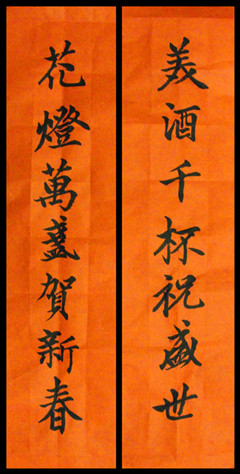 美酒千杯祝盛世
花燈萬盞賀新春